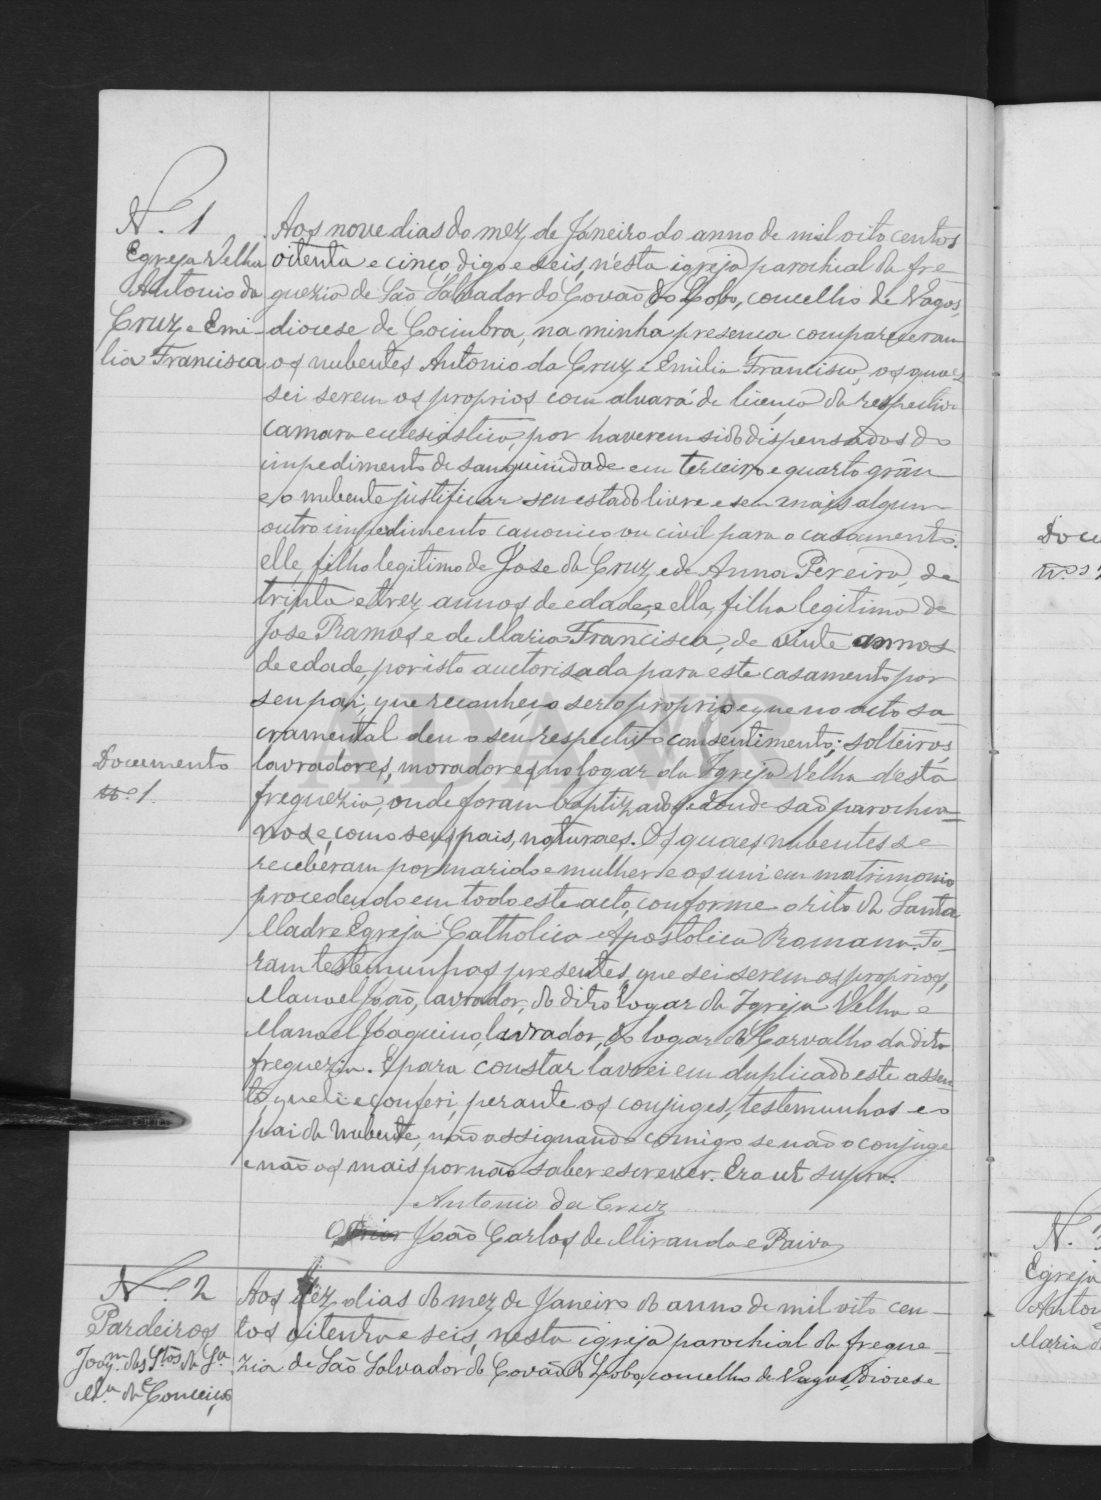 N.º 1
Egreja Velha
Antonio da
Cruz e Emi-
lia Francisca
Aos nove dias do mez de Janeiro do anno de mil oito centos
oitenta e cinco digo e seis, n'esta igreja parochial da fre-
guezia de São Salvador do Covão do Lobo, concelho de Vagos,
diocese de Coimbra, na minha presença compareceram
os nubentes Antonio da Cruz e Emilia Francisca, os quaes
sei serem os proprios com alvará de licença da respectiva
camara eclesiastica, por haverem sido dispensados do
impedimento de sanguinidade em terceiro e quarto gráu
e o nubente justificar seu estado livre e sem mais algum
outro impedimento canonico ou civil para o casamento.
elle, filho legitimo de José da Cruz, e de Anna Pereira, de
trinta e trez annos de edade, e ella, filha legitima de
José Ramos e de Maria Francisca, de vinte annos
de edade, por isto auctorisada para este casamento por
seu pai, que reconheço ser o proprio e que no acto sa-
cramental deu o seu respectivo consentimento; solteiros
lavradores, moradores no logar da Igreja Velha d'esta
freguezia, onde foram baptizados e donde são parochia=
nos e, como seus pais, naturaes. Os quaes nubentes se
receberam por marido e mulher e os uni em matrimonio
procedendo em todo este acto, conforme o rito da Santa
Madre Egreja Catholica Apostolica Romana. Fo-
ram testemunhas presentes, que sei serem os proprios,
Manoel João, lavrador, do dito logar da Igreja Velha e
Manoel Joaquino, lavrador, do logar do Carvalho da dita
freguezia. E para constar lavrei em duplicado este assen
to, que li e conferi, perante os conjuges, testemunhas e o
pai da nubente, não assignando comigo senão o conjuge
e não os mais por não saber escrever. Era ut supra.
Antonio da Cruz
O Prior João Carlos de Miranda e Paiva
Documento
n.º 1.
N.º 2
Pardeiros
Joaq.m dos Stos da Sª
e
M.ª da Conceição
Aos dez dias do mez de Janeiro do anno de mil oito cen-
tos oitenta e seis, nesta igreja parochial da fregue-
zia de São Salvador do Covão do Lobo, concelho de Vagos, diocese
Docu
n.os
N.
Egreja
Anton
e
Maria d
ADAVR